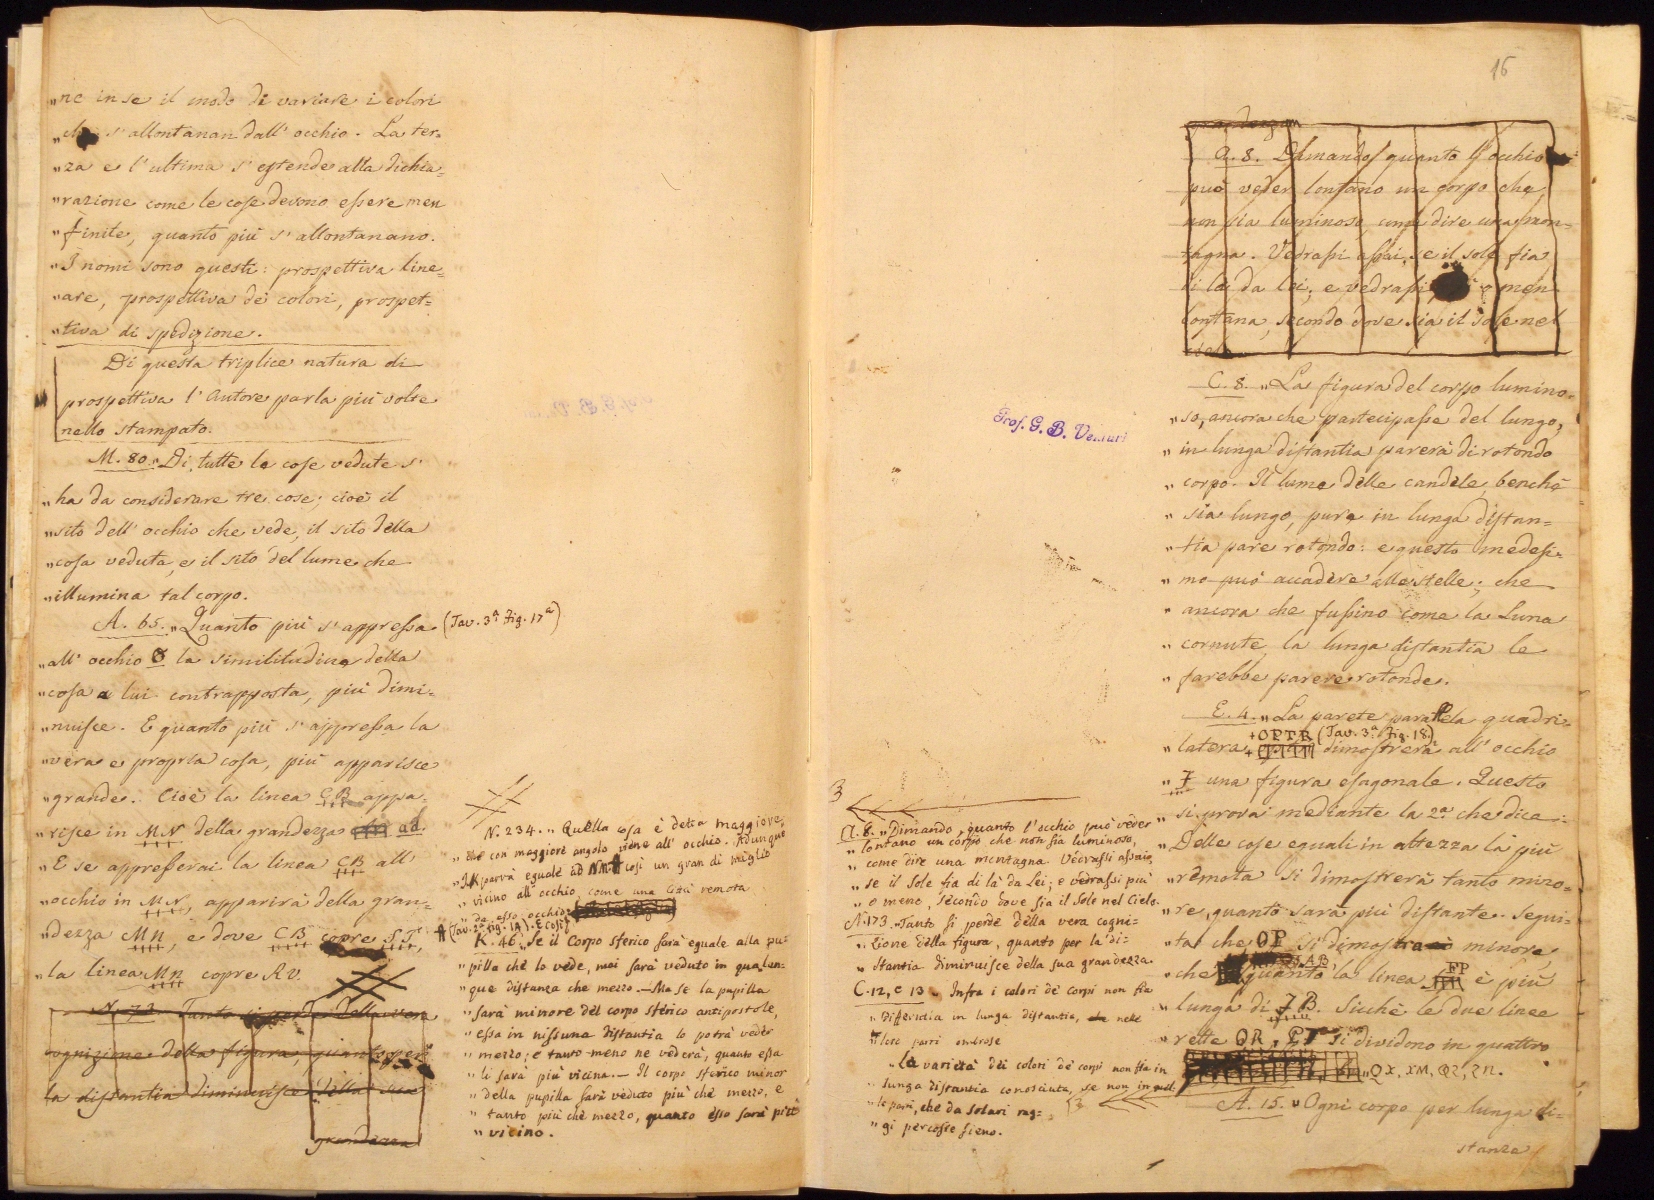 „ne in se il modo di variare i colori
„che s'allontanan dall'occhio. La ter=
„za e l'ultima s'estende alla dichia=
„razione come le cose devono essere men
„finite, quanto più s'allontanano.
„I nomi sono questi: prospettiva line=
„are, prospettiva de' colori, prospet=
„tiva di spedizione.
Di questa triplice natura di
prospettiva l'Autore parla più volte
nello stampato.
M. 80. „Di tutte le cose vedute s'
„ha da considerare tre cose; cioè il
„sito dell'occhio che vede, il sito della
„cosa veduta, e il sito del lume che
„illumina tal corpo.
A. 65. „Quanto più s'appressa (Tav. 3ª Fig. 17ª)
„all'occhio O la similitudine della
„cosa a lui contrapposta, più dimi=
„nuisce. E quanto più s'appressa la
„vera e propria cosa, più apparisce
„grande. Cioè la linea CB appa=
„risce in MN della grandezza ad.
„E se appresserai la linea CB all'
„occhio in MN, apparirà della gran=
„dezza MN, e dove CB copre ST,
„la linea Mn copre RV.
N. 173. Tanto si perde della vera
cognizione della figura, quanto per
la distantia diminuisce della sua
grandezza
N. 234. „Quella cosa è detta maggiore,
„che con maggiore angolo viene all'occhio. Adunque
„IK parrà eguale ad NM. Così un gran di miglio
„vicino all'occhio, come una Città remota
„da esso occhio.
(Tav. 2ª Fig. 19). E così
K. 46. „Se il Corpo sferico sarà eguale alla pu=
„pilla che lo vede, mai sarà veduto in qualun=
„que distanza che mezzo.—Ma se la pupilla
„sarà minore del corpo sferico antipostole,
„essa in nissuna distantia lo potrà veder
„mezzo; e tanto meno ne vederà, quanto essa
„li sarà più vicina.— Il corpo sferico minor
„della pupilla sarà veduto più che mezzo, e
„tanto più che mezzo, quanto esso sarà più
„vicino.
16
Prof. G. B. Venturi
grandezza
A. 8. Dimando, quanto l'occhio
può veder lontano un corpo che
non sia luminoso, come dire una mon=
tagna. Vedrassi assai, se il sole fia
di là da lei; e vedrassi più o men
lontana, secondo dove sia il sole nel
cielo.
C. 8. „La figura del corpo lumino=
„so, ancora che partecipasse del lungo,
„in lunga distantia parerà di rotondo
„corpo. Il lume delle candele, benchè
„sia lungo, pure in lunga distan=
„tia pare rotondo: e questo medesi=
„mo può accadere alle stelle; che
„ancora che fussino come la Luna
„cornute, la lunga distantia le
„farebbe parere rotonde.
E. 4. „La parete paralela quadri=
+OPTR (Tav. 3ª Fig. 18.)
„latera dimostrerà all'occhio
„7 una figura esagonale. Questo
„si prova mediante la 2ª che dice:
„Delle cose eguali in altezza la più
„remota si dimostrerà tanto mino=
„re, quanto sarà più distante. Segui=
„ta che OP si dimostra minore
„che AB, quanto la linea FP è più
„lunga di 7B. Sicchè le due linee
„rette OR, PT si dividono in quattro
„QX, XM, QZ, ZN.
A. 15. „Ogni corpo per lunga di=
stanza
3
A. 8. „Dimando, quanto l'occhio può veder
„lontano un corpo che non sia luminoso,
„come dire una montagna. Vedrassi assaio,
„se il Sole fia di là da Lei; e vedrassi più
„o meno, secondo dove sia il Sole nel Cielo.
N. 173. „Tanto si perde della vera cogni=
„zione della figura, quanto per la di=
„stantia diminuisce della sua grandezza.
C. 12, e 13 „Infra i colori de' corpi non fia
„differentia in lunga distantia, nelle
„loro parti ombrose
„La varietà dei colori de' corpi non fia in
„lunga distantia conosciuta, se non in quel=
„le parti, che da solari rag=
„gi percosse sieno.
3